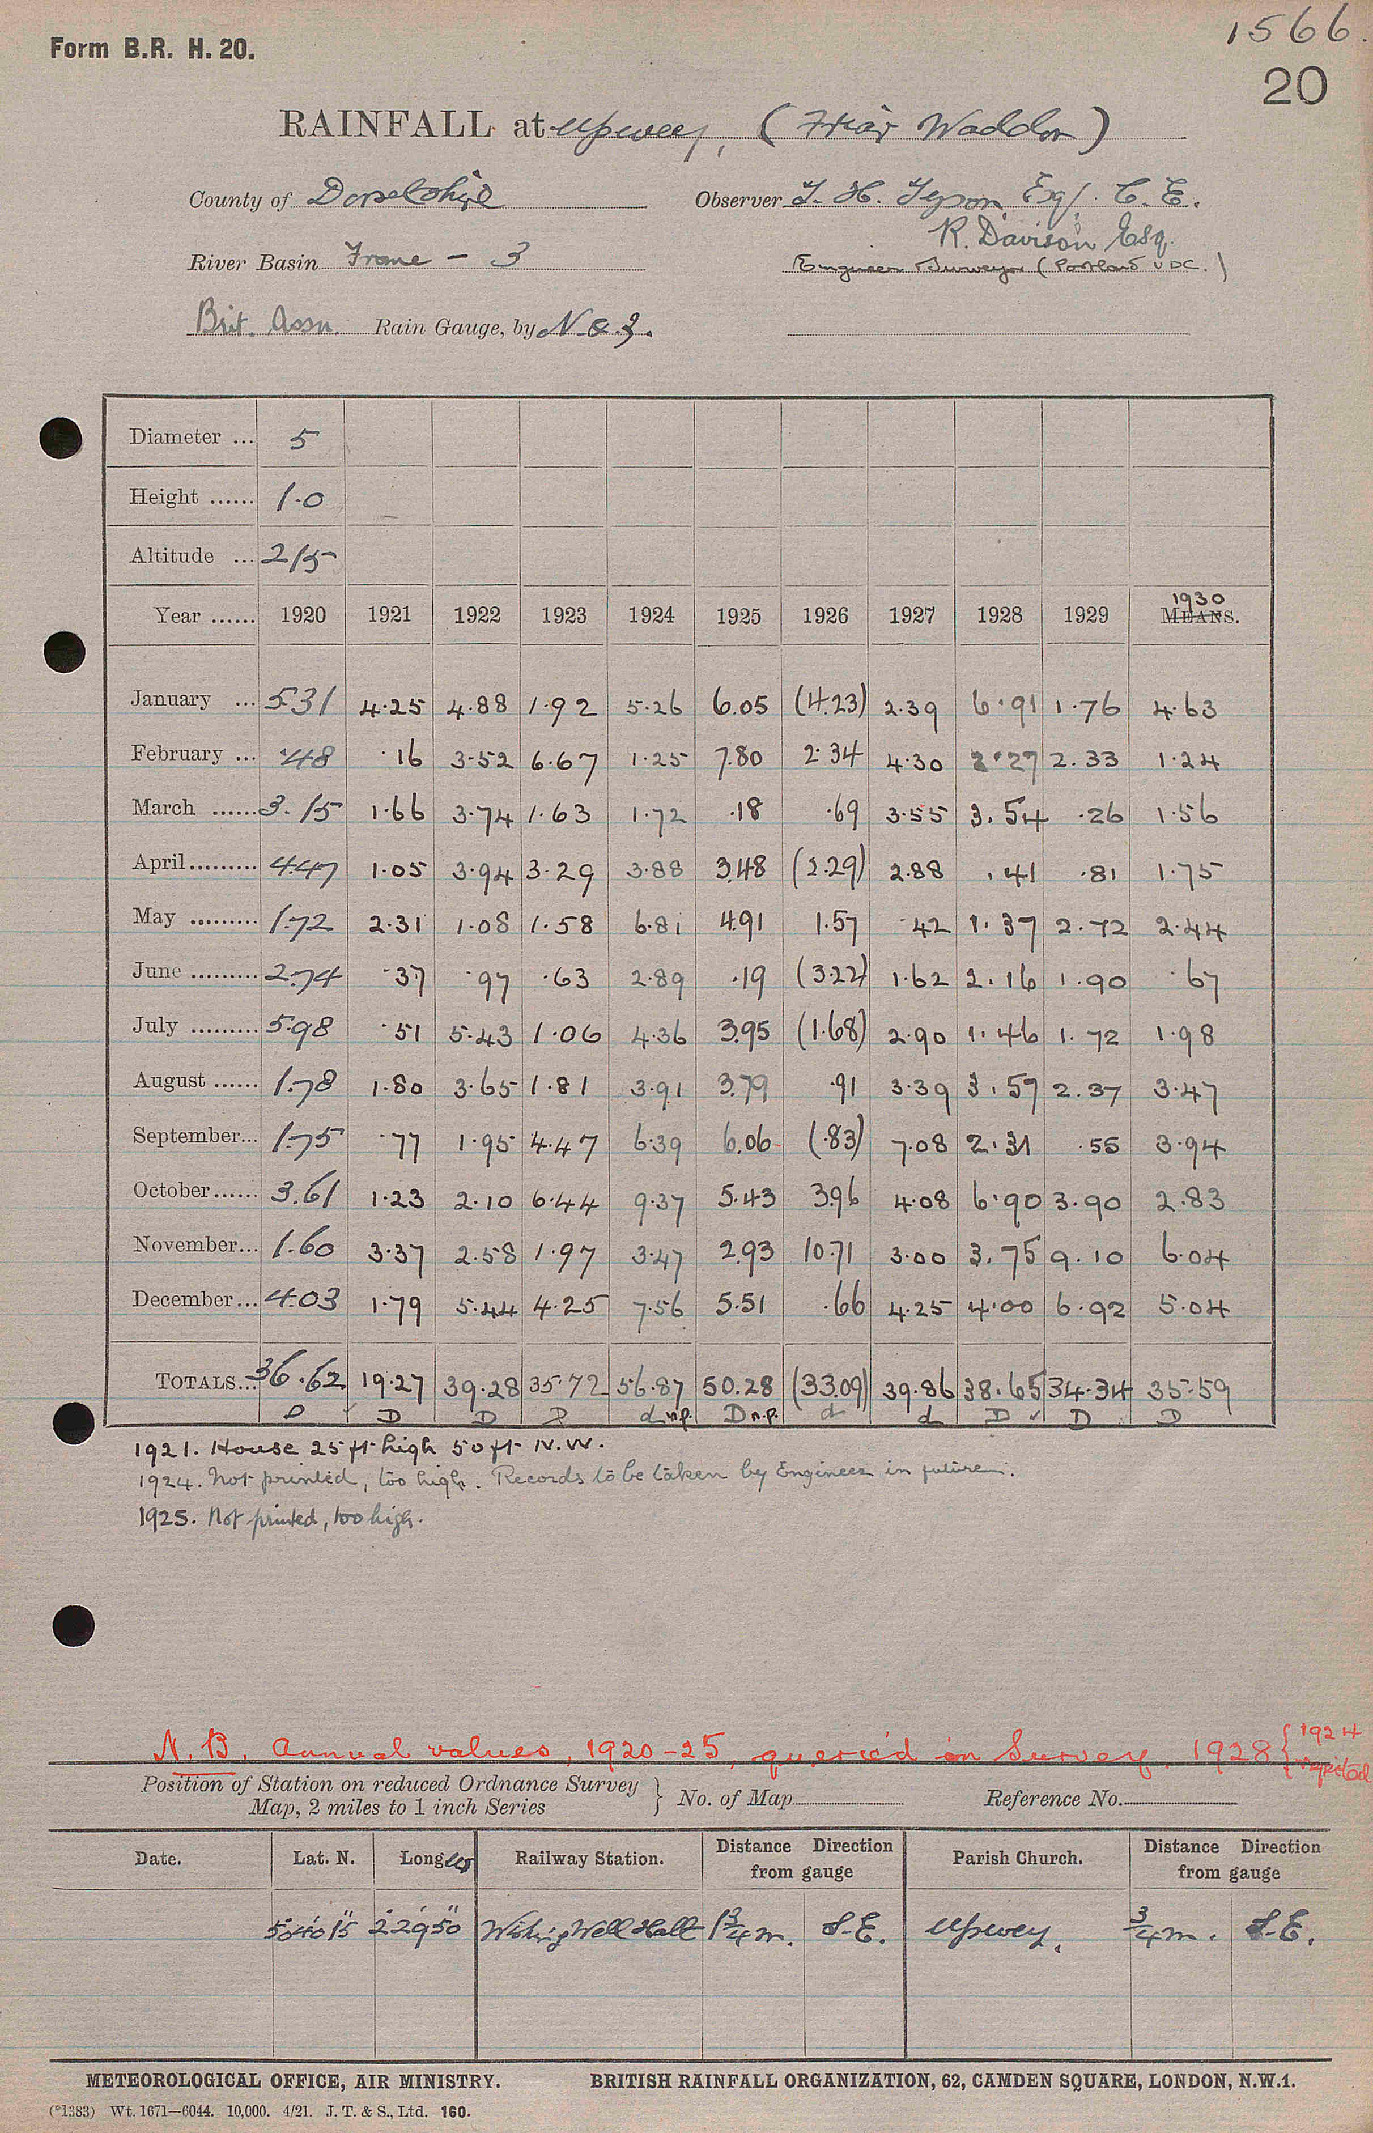 1566.
Form B.R. H. 20.
20
RAINFALL at Upwey, (Friar Waddon)
County of Dorsetshire Observer T. H. Tyson, Esq. C. E.
R. Davison Esq.
River Basin Frome - 3 Engineer Surveyor (Portland UDC.)
Brit. Assn. Rain Gauge, by N & Z.
Diameter ... 5
Height ...... 1.0
Altitude ... 215
1930
Year ...... 1920 1921 1922 1923 1924 1925 1926 1927 1928 1929 MEANS.
January ... 5.31 4.25 4.88 1.92 5.26 6.05 (4.23) 2.39 6.91 1.76 4.63
February ... .48 .16 3.52 6.67 1.25 7.80 2.34 4.30 2.27 2.33 1.24
March ...... 3.15 1.66 3.74 1.63 1.72 .18 .69 3.55 3.54 .26 1.56
April ......... 4.47 1.05 3.94 3.29 3.88 3.48 (2.29) 2.88 .41 .81 1.75
May ......... 1.72 2.31 1.08 1.58 6.81 4.91 1.57 .42 1.37 2.72 2.44
June ......... 2.74 .37 .97 .63 2.89 .19 (3.22) 1.62 2.16 1.90 .67
July ......... 5.98 .51 5.43 1.06 4.36 3.95 (1.68) 2.90 1.46 1.72 1.98
August ...... 1.78 1.80 3.65 1.81 3.91 3.79 .91 3.39 3.57 2.37 3.47
September... 1.75 .77 1.95 4.47 6.39 6.06 (.83) 7.08 2.31 .55 3.94
October...... 3.61 1.23 2.10 6.44 9.37 5.43 3.96 4.08 6.90 3.90 2.83
November... 1.60 3.37 2.58 1.97 3.47 2.93 10.71 3.00 3.75 9.10 6.04
December... 4.03 1.79 5.44 4.25 7.56 5.51 .66 4.25 4.00 6.92 5.04
TOTALS... 36.62 19.27 39.28 35.72 56.87 50.28 (33.09) 39.86 38.65 34.34 35.59
D D D D d n.p. D n.p. d d D D D
1921. House 25 ft high 50 ft N.W.
1924. Not printed, too high. Records to be taken by Engineer in future.
1925. Not printed, too high.
N.B. Annual values, 1920-25, queried in Survey, 1928 { 1924 rejected
Position of Station on reduced Ordnance Survey Map, 2 miles to 1 inch Series } No. of Map Reference No.
Date. Lat. N. Long W Railway Station. Distance Direction from gauge Parish Church. Distance Direction from gauge
50° 40' 15" 2° 29' 50" Wishing Well Halt 1 3/4 m. S.E. Upwey. 3/4 m. S.E.
METEOROLOGICAL OFFICE, AIR MINISTRY. BRITISH RAINFALL ORGANIZATION, 62, CAMDEN SQUARE, LONDON, N.W.1.
(*1383) Wt. 1671—6044. 10,000. 4/21. J. T. & S., Ltd. 160.